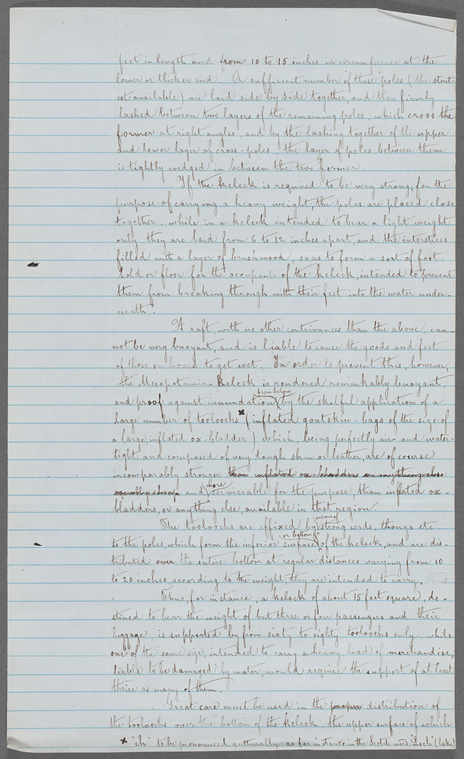 feet in length and from 10 to 15 inches in circumference at the
lower or thicker end. A sufficient number of these poles (the stout-
est available) are laid side by side together, and then firmly
lashed between two layers of the remaining poles, which cross the
former at right angles, and by the lashing together of the upper
and lower layer of cross-poles, the layer of poles between them
is tightly wedged in between the two former.
If the keleck is required to be very strong, for the
purpose of carrying a heavy weight, the poles are placed close
together, while in a keleck intended to bear a light weight
only they are laid from 6 to 12 inches apart, and the interstices
filled with a layer of brushwood, so as to form a sort of foot
hold or floor for the occupants of the keleck, intended to prevent
them from breaking through with their feet into the water under-
neath.
A raft, with no other contrivances than the above, can-
not be very buoyant, and is liable to cause the goods and feet
of those on board to get wet. In order to prevent this, however,
the Mesopotamian Keleck is rendered remarkably buoyant
and proof against inundation from below by the skilful application of a
large number of tooloochs* (inflated goatskin-bags of the size of
a large inflated ox-bladder) which, being perfectly air- and water-
tight and composed of very tough skin or leather, are of course
incomparably stronger than inflated ox bladders or anything else
and more serviceable for the purpose, than inflated ox-
bladders, or anything else, available in that region.
The tooloochs are affixed by strong cords, thongs etc
to the poles, which form the inferior surface or bottom of the keleck, and are dis-
tributed over the entire bottom at regular distances varying from 10
to 20 inches, according to the weight, they are intended to carry.
Thus, for instance, a keleck of about 15 feet square, de-
stined to bear the weight of but three or four passengers and their
luggage is supported by from sixty to eighty toolochs only, while
one of the same size, intended to carry a heavy load of merchandise,
liable to be damaged by water, would require the support of at least
thrice as many of them.
Great care must be used in the distribution of
the toolochs over the bottom of the keleck the upper surface of which
* "ch" to be pronounced gutturally as for instance in the Scotch word "Loch" (lake)